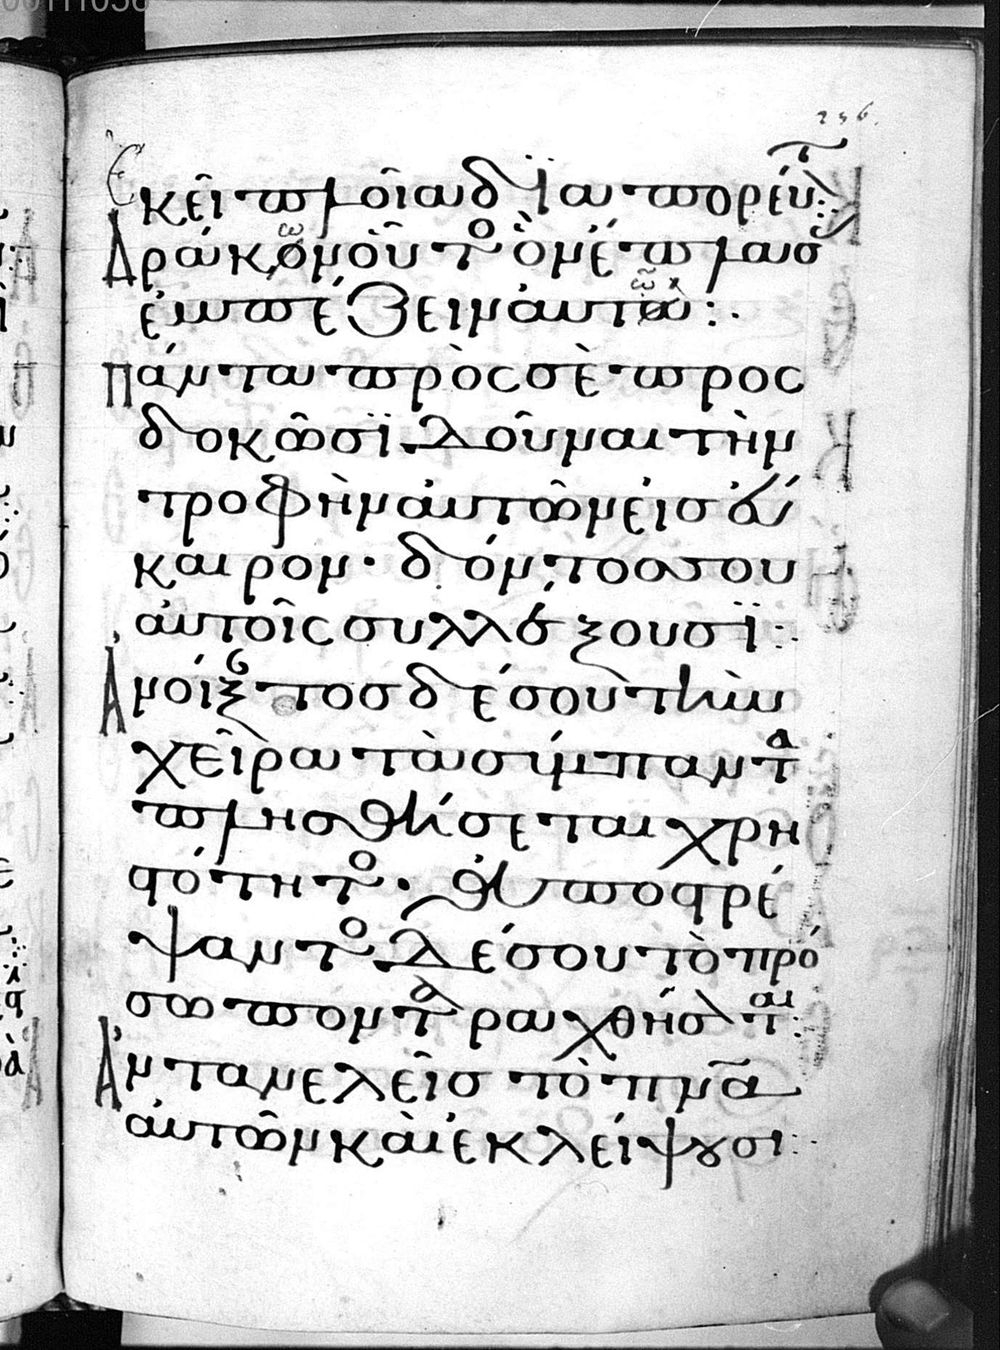 00111038
236.
Ἐκεῖ πλοῖα διαπορεύ
Δράκων οὗτος ὃν ἔπλασ
ἐμπέζειν αὐτῶ :·
Πάντα πρὸς σὲ προς
δοκῶσϊ δοῦναι τὴν
τροφὴν αὐτῶν εἰς
καιρον · δόντος σου
αὐτοῖς συλλέξουσϊ :·
Ἀνοίξαντος δέ σου τὴν
χεῖρα τὰ σύμπαντα
πλησθήσεται χρη
στότητος · ἀποστρέ
ψαντος δέ σου τὸ πρό
σωπον ταραχθήσονται :
Ἀντανελεῖς τὸ πνᾶ
αὐτῶν καὶ ἐκλείψουσι :·